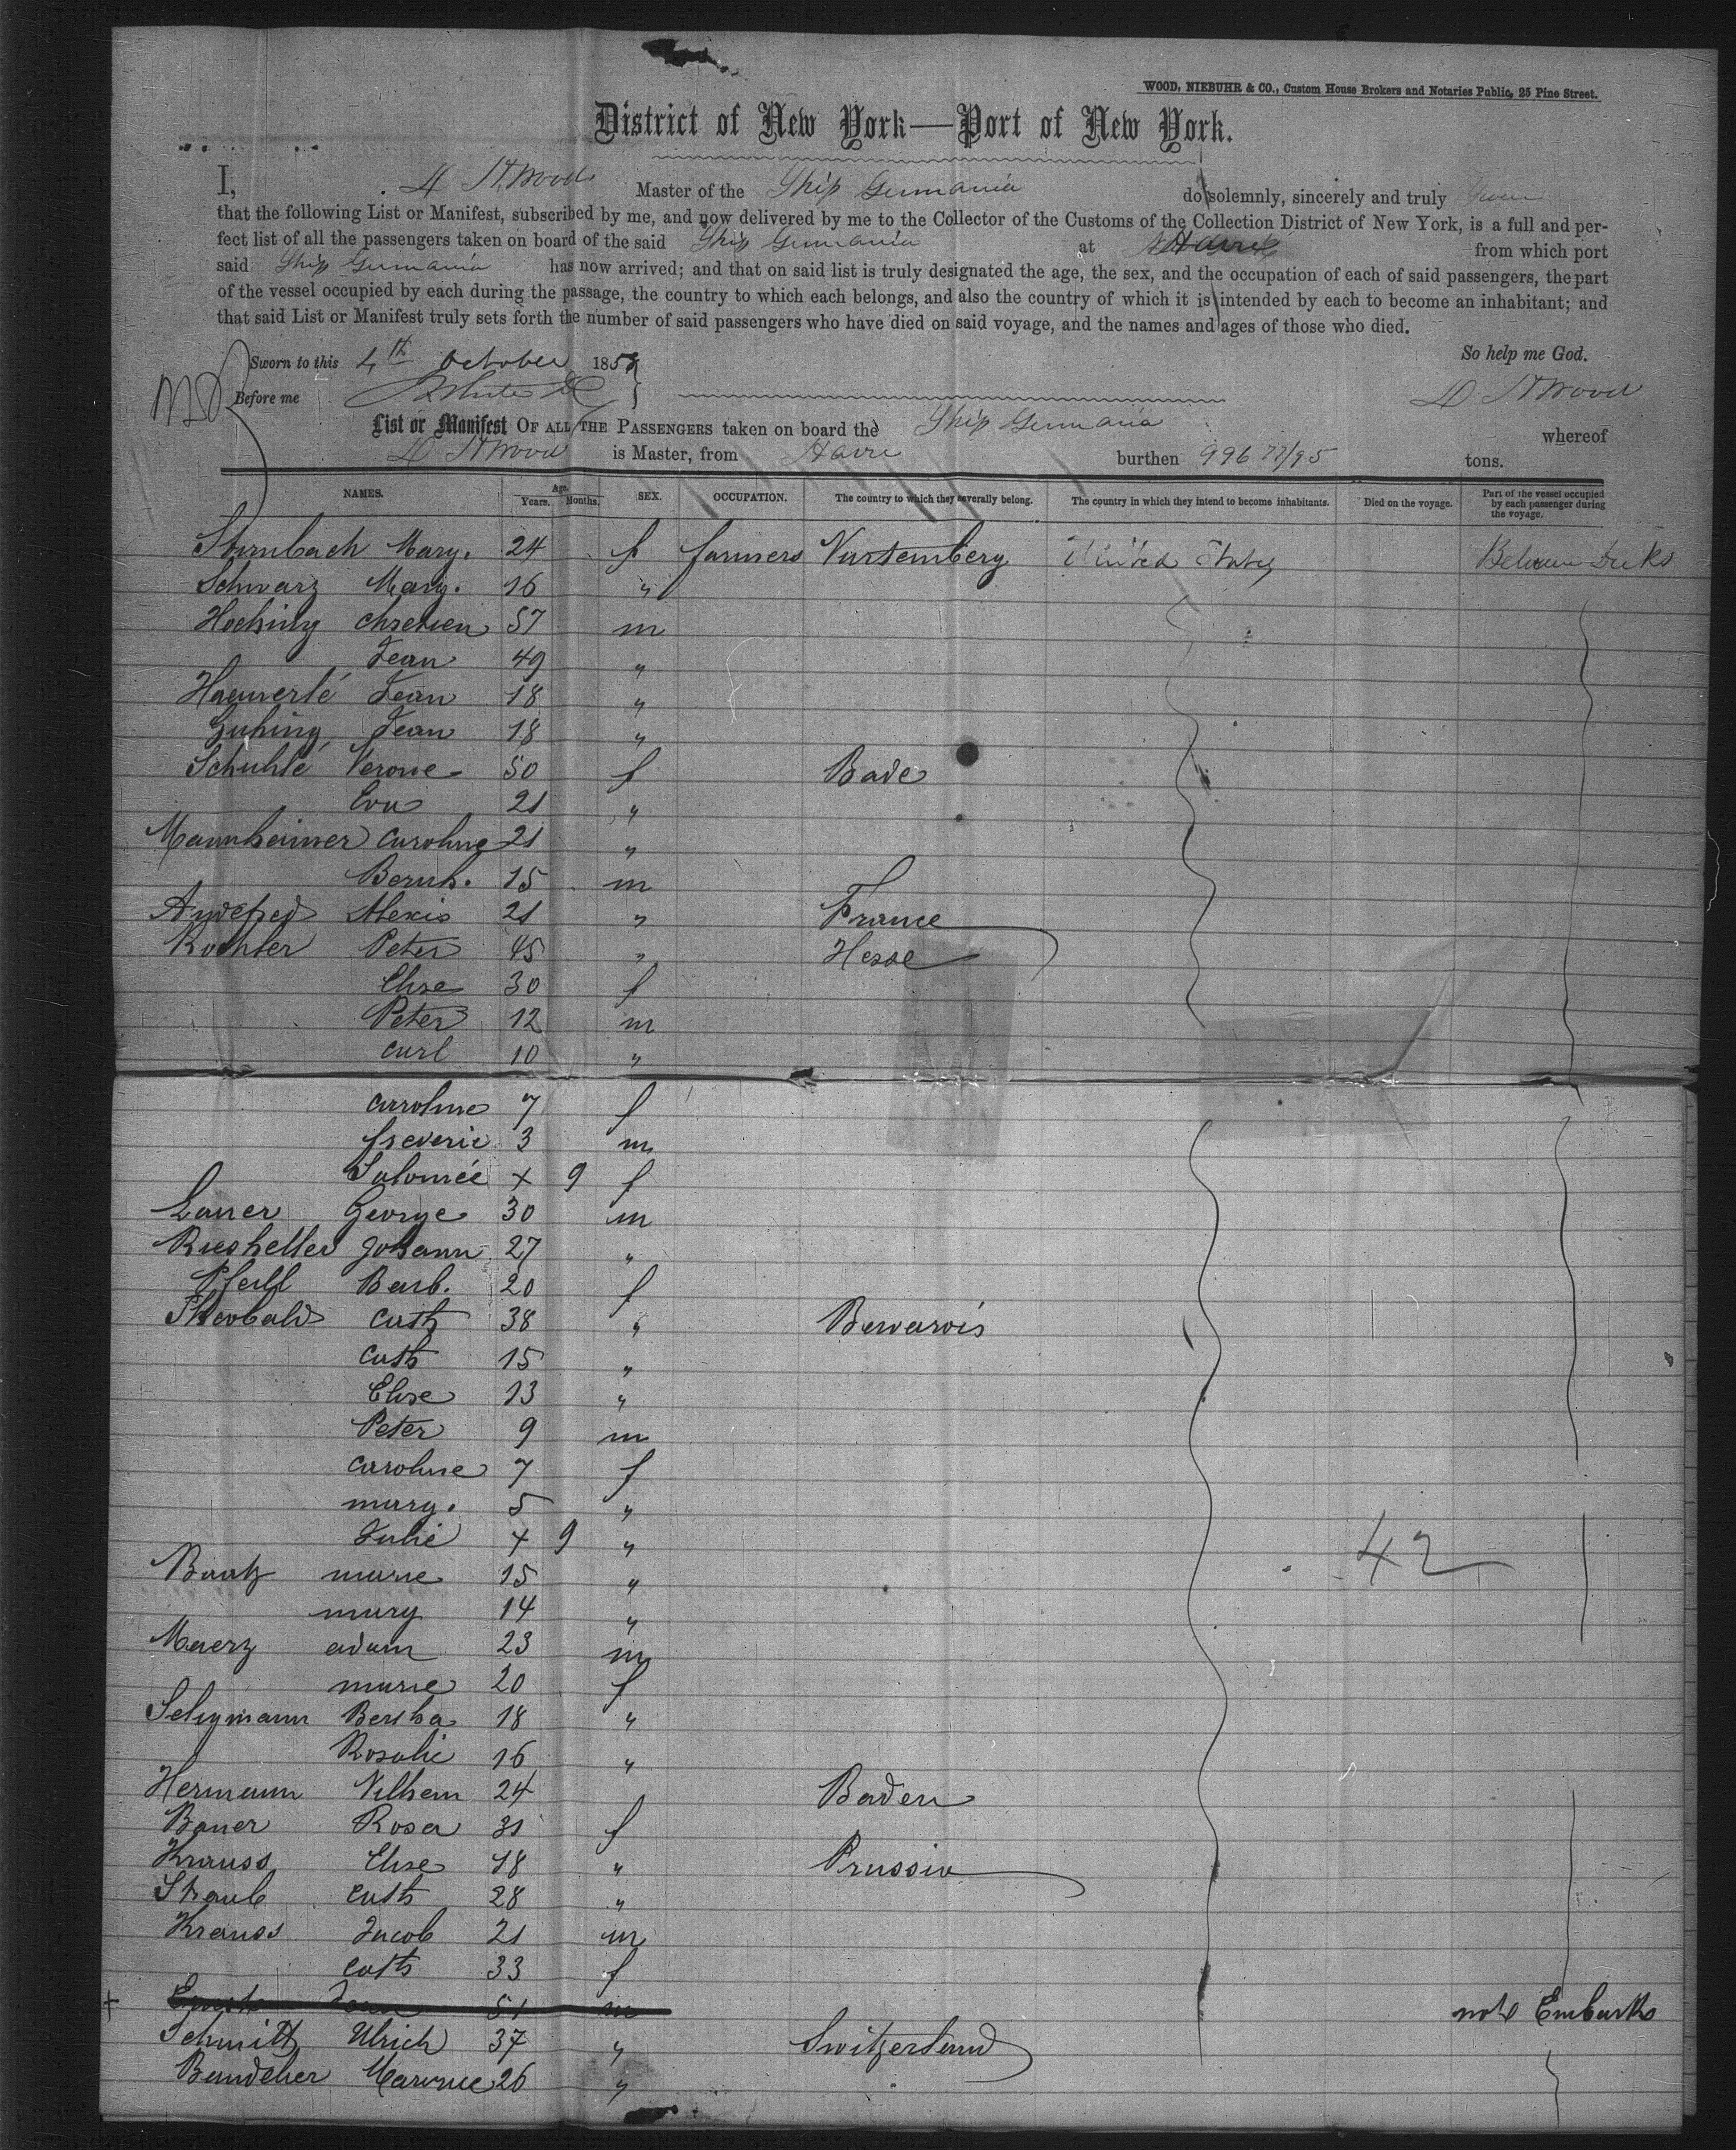 WOOD, NIEBUHR & CO., Custom House Brokers and Notaries Public, 25 Pine Street.
District of New York—Port of New York.
I, D H Wood Master of the Ship Germania do solemnly, sincerely and truly Swear
that the following List or Manifest, subscribed by me, and now delivered by me to the Collector of the Customs of the Collection District of New York, is a full and per-
fect list of all the passengers taken on board of the said Ship Germania at Havre from which port
said Ship Germania has now arrived; and that on said list is truly designated the age, the sex, and the occupation of each of said passengers, the part
of the vessel occupied by each during the passage, the country to which each belongs, and also the country of which it is intended by each to become an inhabitant; and
that said List or Manifest truly sets forth the number of said passengers who have died on said voyage, and the names and ages of those who died.
So help me God.
Sworn to this 4th October 185
Before me D H Wood
List or Manifest OF ALL THE PASSENGERS taken on board the Ship Germania whereof
D H Wood is Master, from Havre burthen 996 77/95 tons.
NAMES. Age. Years. Months. SEX. OCCUPATION. The country to which they severally belong. The country in which they intend to become inhabitants. Died on the voyage. Part of the vessel occupied by each passenger during the voyage.
Sternbach Mary. 24 f farmers Vurtemberg United States Between Decks
Schwarz Mary. 16 "
Hoching Chretien 57 m
Jean 49 "
Haeuerlé Jean 18 "
Guhing Jean 18 "
Schuhlé Verone 50 f Bade
Eva 21 "
Mannheimer Caroline 21 "
Bernh. 15 m
Alexis 21 " France
Koehler Peter 45 " Hesse
Elise 30 f
Peter 12 m
Carl 10 "
Caroline 7 f
frederic 3 m
Salomée + 9 f
Lauer George 30 m
Riesheller Johann 27 "
Pfeill Barb. 20 f
Theobald Cath 38 "
Cath 15 "
Elise 13 "
Peter 9 m
Caroline 7 f
mary. 5 "
Julie + 9 "
42
Baatz marie 15 "
mary 14 "
Maerz adam 23 m
marie 20 f
Seligmann Bertha 18 "
Rosalie 16 "
Hermann Vilhem 24 Baden
Bauer Rosa 31 f
Krauss Elise 18 " Prussia
Straub Cath 28 "
Krauss Jacob 21 m
Cath 33 f
+ 51 m not Embarks
Schmitt Ulrich 37 " Switzerland
Bandelier 26 "